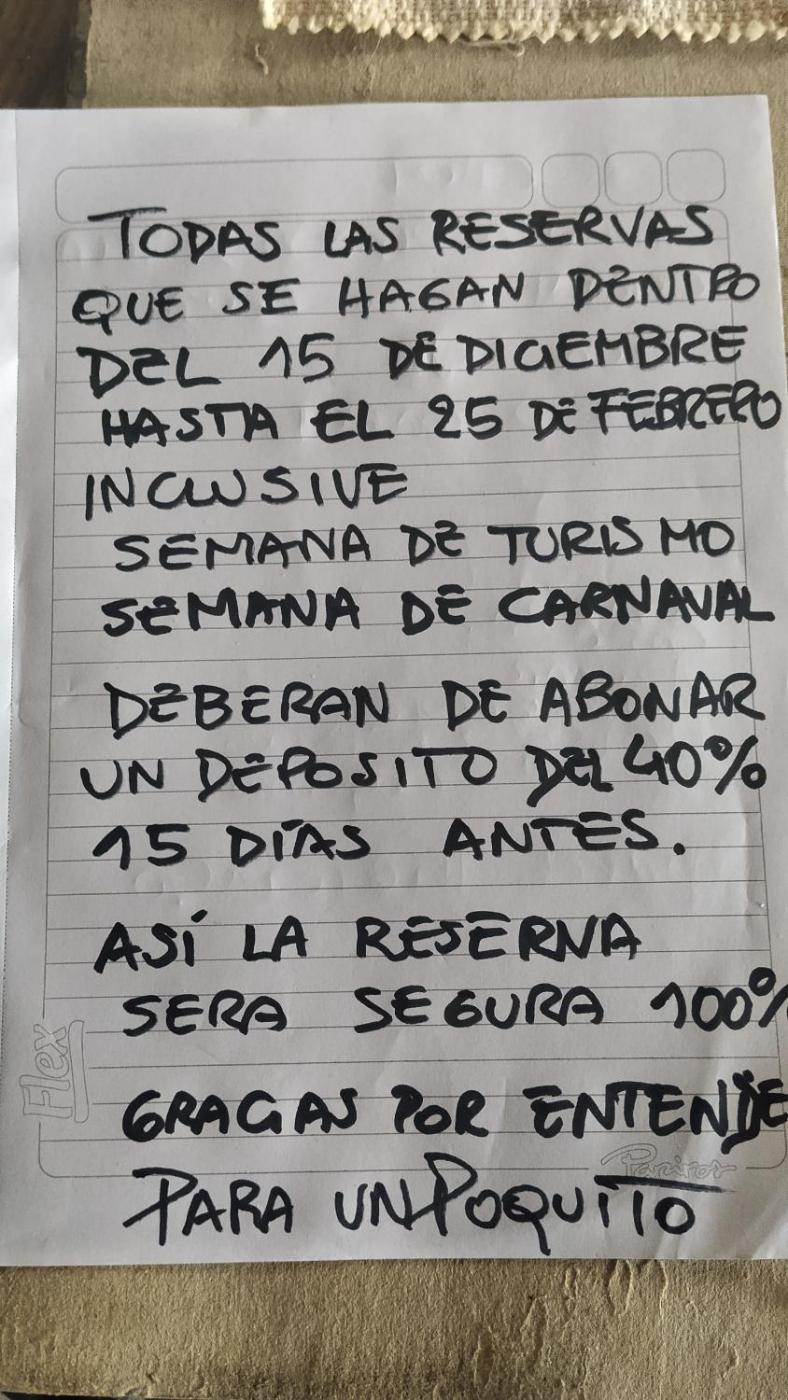 TODAS LAS RESERVAS
QUE SE HAGAN DENTRO
DEL 15 DE DICIEMBRE
HASTA EL 25 DE FEBRERO
INCLUSIVE
SEMANA DE TURISMO
SEMANA DE CARNAVAL
DEBERAN DE ABONAR
UN DEPOSITO DEL 40%
15 DÍAS ANTES.
ASÍ LA RESERVA
SERA SEGURA 100%
Flex
GRACIAS POR ENTENDE
Papiros
PARA UN POQUITO